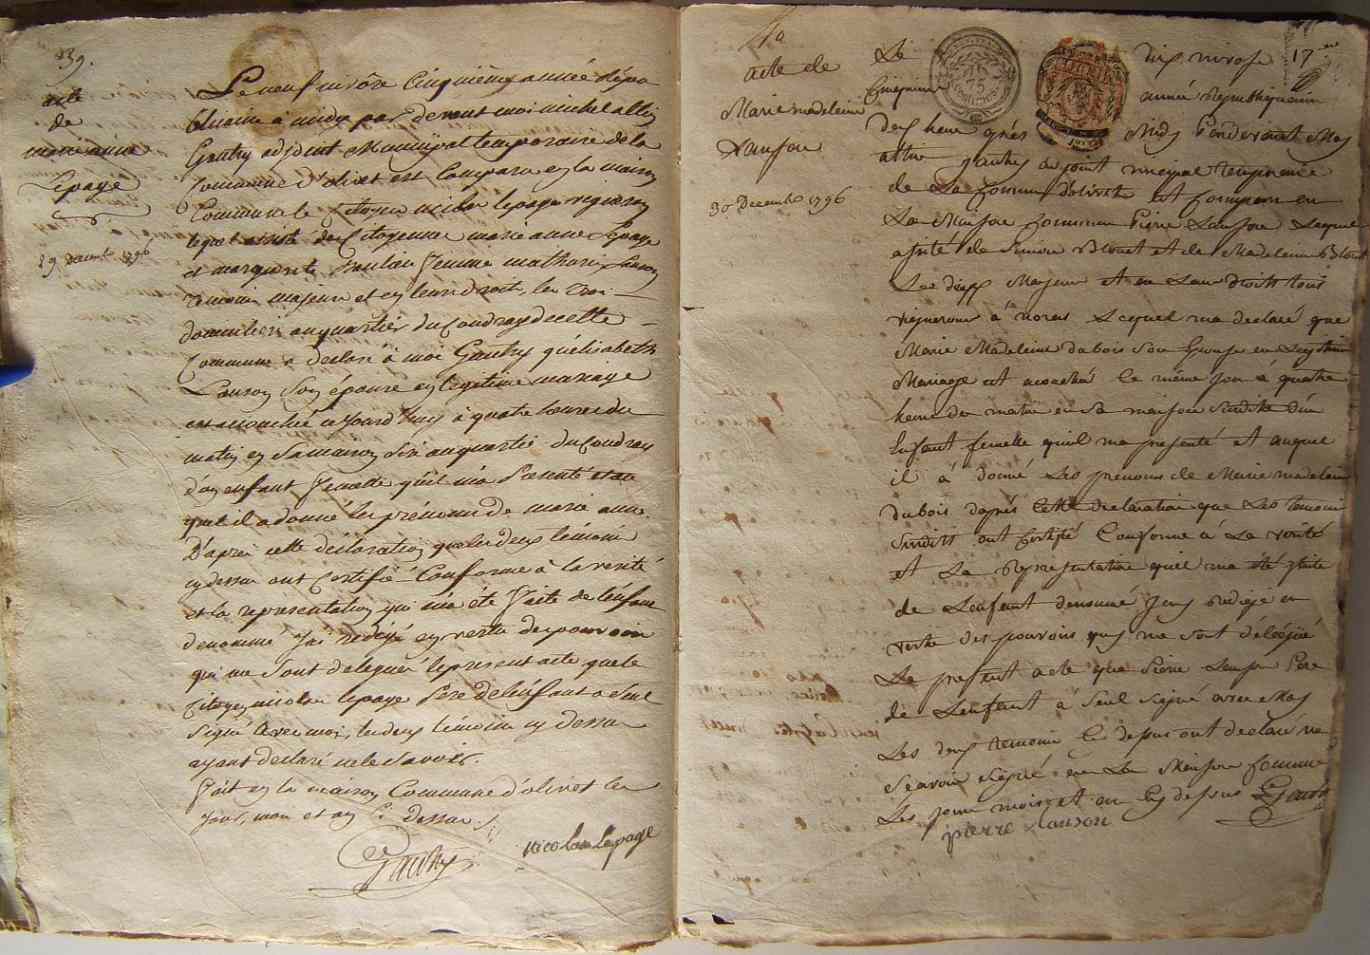 39.
acte
de
marie anne
Lepage
29 decembre 1796
Le neuf nivôse Cinquieme année répu
blicaine à midy par devant moi michel
Gautry adjoint Municipal temporaire de la
Commune d'olivet est Comparu en la maison
Commune le Citoyen nicolas lepage vigneron
lequel assisté des Citoyenne marie anne Lepage
et marguerite femme mathurin Lanson
temoin majeure et en leurs droit, les trois
domiciliés au quartier du Coudray de cette
Commune a déclaré à moi Gautry qu'élisabeth
Lanson son épouse en légitime mariage
est accouchée ce jourd'huy à quatre heures du
matin en sa maison size au quartier du Coudray
d'un enfant femelle qu'il m'a Presenté et au
quel il a donné les prénoms de marie anne.
D'après cette déclaration que les deux témoins
cy dessus ont Certifié Conforme à la verité
et la representation qui m'a été faite de l'enfant
denommé J'ai redigé en vertu des pouvoirs
qui me sont delegués le present acte que le
Citoyen nicolas lepage Pere de l'enfant a seul
signé avec moi, les deux témoins cy dessus
ayant declaré ne le savoir.
fait en la maison Commune d'olivet les
jour, mois et an Ci dessus.
Gautry
nicolas lepage
40
acte de
Marie madeleine
Lanson
30 Decembre 1796
17
Le dix nivose
Cinquieme année Republiquenne
deux heure après Midy Pardevant Moy
gautry adjoint municipal temporaire
de La Commune d'olivet est Comparu en
La Maison Commune Pierre Lanson Lequel
asisté de Simon Blouet et de Madeleine Blouet
Les deux Majeur et en Leur droits tous
vignerons Lequel ma declaré que
Marie Madeleine dubois son Epouse en Legitime
Mariage est acouchée le même jour a quatre
heure du matin en sa maison susdite d'un
Enfant femelle qu'il ma presenté et auquel
il à donné Les prenoms de Marie madelaine
dubois d'aprés cette declaration que Les temoins
susdits ont Certifié Conforme à La verité
et La Representation qu'il ma été faite
de Lenfant denommé J'ay redigé en
vertu des pouvoirs qui me sont délégué
Le present acte que Pierre Lanson Pere
de Lenfant à seul signé avec Moy
Les deux temoins Cy desus ont declaré ne
Scavoir signé en La Maison Commune
Les jour mois et an Cy desus Gautry
pierre lanson